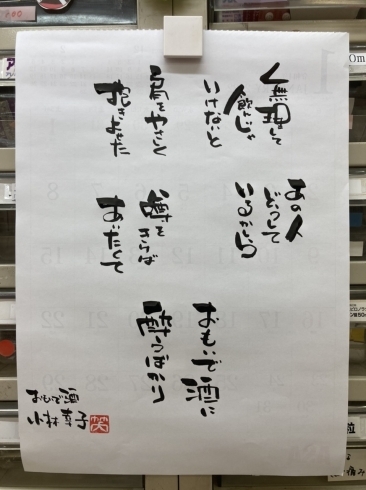 〽無理して
飲んじゃ
いけないと
肩をやさしく
抱きよせた
あの人
どうして
いるかしら
噂を
きけば
あいたくて
おもいで酒に
酔うばかり
おもいで酒
小林幸子
笑